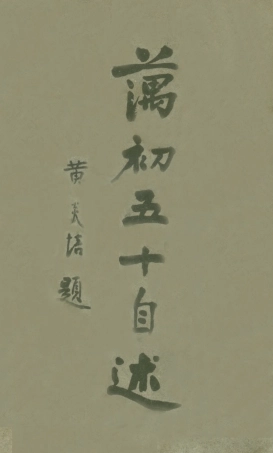 藕初五十自述
黃炎培題